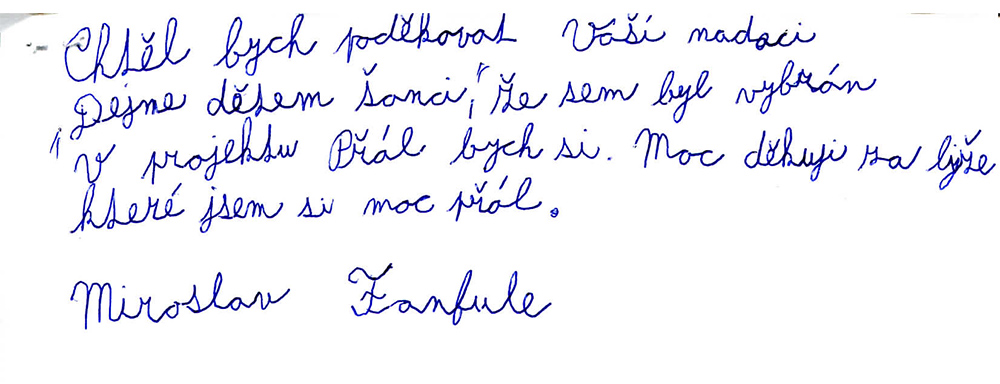 Chtěl bych poděkovat Vaší nadaci
„Dejme dětem šanci," že sem byl vybrán
V projektu Přál bych si. Moc děkuji za lyže
které jsem si moc přál.
Miroslav Fanfule